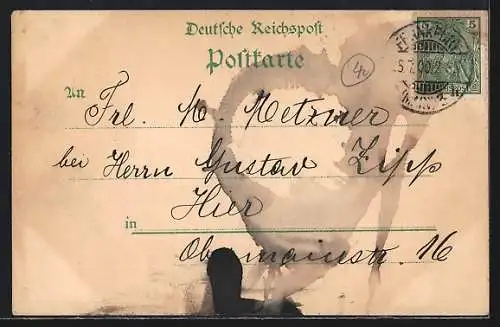 Deutsche Reichspost
Postkarte
5
An
Frl. M. Metzner
bei Herrn Gustav Zipp
Hier
in
Obermainstr. 16